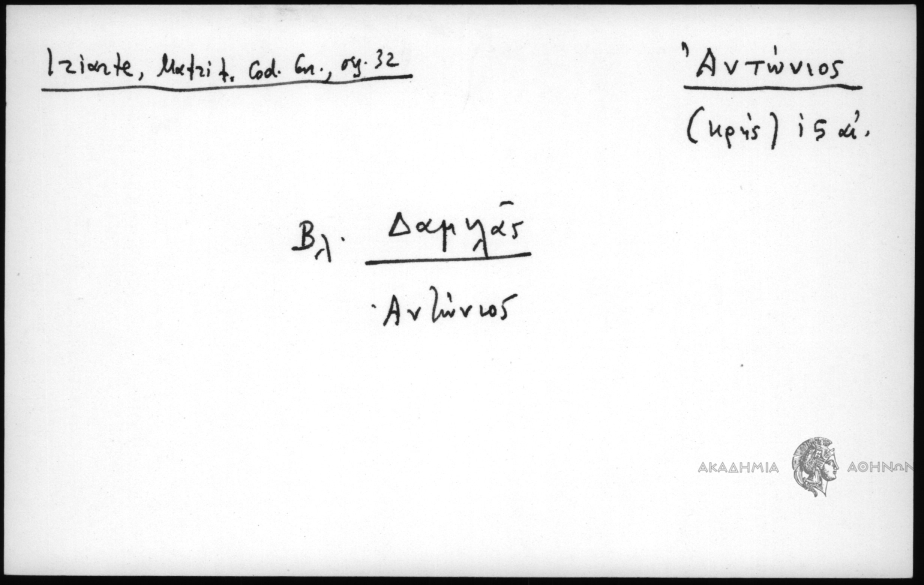 Iriarte, Matrit. Cod. Gr., σγ. 32
Ἀντώνιος
(κρής) ις αἰ.
Βλ. Δαμιλᾶς
Ἀντώνιος
ΑΚΑΔΗΜΙΑ ΑΘΗΝΩΝ